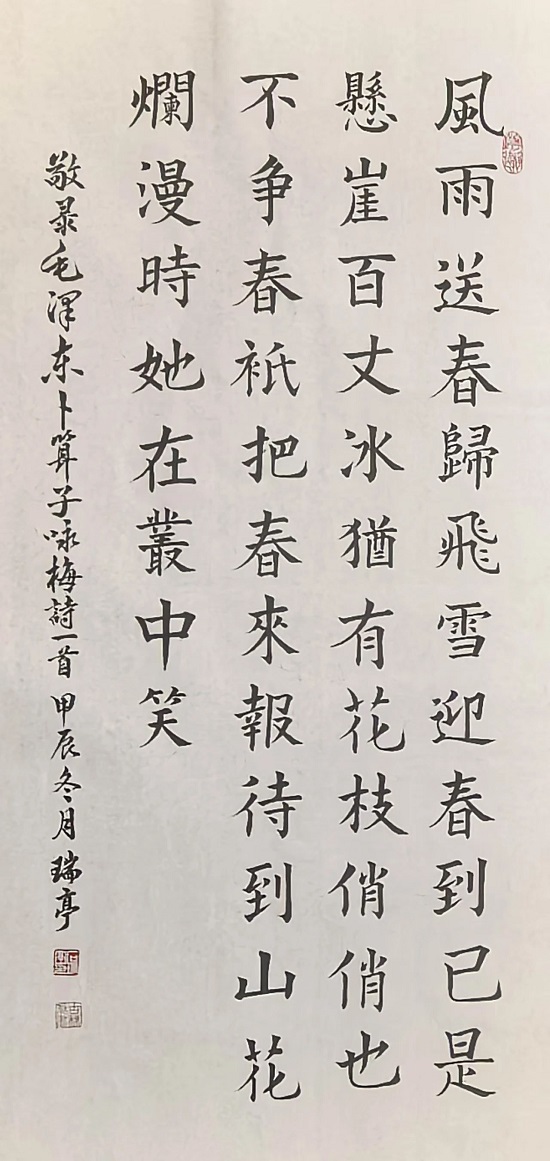 風雨送春歸飛雪迎春到已是
懸崖百丈冰猶有花枝俏俏也
不争春祇把春來報待到山花
爛漫時她在叢中笑
敬录毛澤东卜算子咏梅詩一首 甲辰冬月 瑞亭